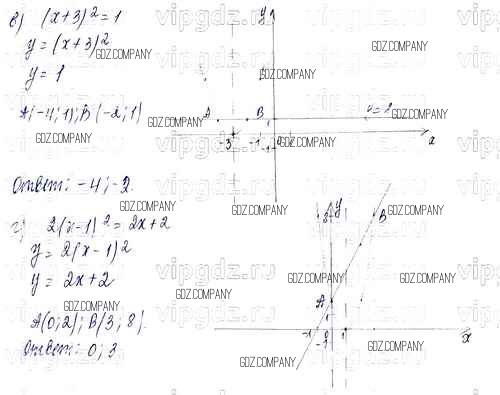 в) (x+3)² = 1
y = (x+3)²
y = 1
A(-4; 1); B(-2; 1)
Ответ: -4; -2.
y
A
B
1
-3
-1
0
-1
x
г) 2(x-1)² = 2x+2
y = 2(x-1)²
y = 2x+2
A(0; 2); B(3; 8).
Ответ: 0; 3
8
y
B
A
1
-1
1
x
vipgdz.ru
GDZ.COMPANY